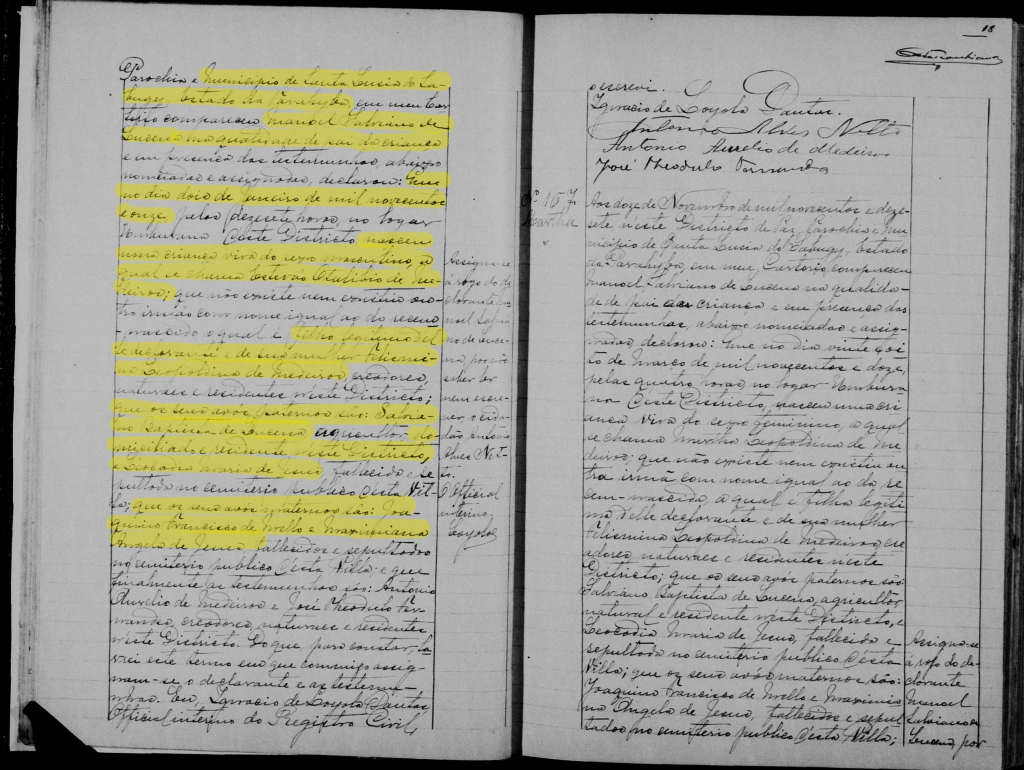 Parochia e Municipio de Santa Lusia do Sa-
bugy, Estado da Parahyba, em meu Car-
torio compareceu Manoel Salviano de
Lucena na qualidade de pai da criança
e em presença das testemunhas abaixo
nomeiadas e assignadas, declarou: Que
no dia dois de Janeiro de mil novecentos
e onze, pelas dezesete horas, no logar
Umburana d'este Districto, nasceu
uma criança viva do sexo masculino, a
qual se chama Estevão Etelibio de Me-
deiros; que não existe nem existiu ou-
tro irmão com nome igual ao do recem
-nascido, o qual é filho legitimo del-
le declarante e de sua mulher Felismi-
na Leopoldina de Medeiros, creadores,
naturaes e residentes n'este Districto;
que os seus avós paternos são: Salvia-
no Baptista de Lucena agricultor, do-
miciliado e residente n'este Districto,
e Leocadia Maria de Jesus, fallecida e se-
pultada no cemiterio publico d'esta Vil-
la; que os seus avós maternos são: Joa-
quim Francisco de Mello e Maximiana
Angela de Jesus, fallecidos e sepultados
no cemiterio publico d'esta Villa e que
finalmente as testemunhas são: Antonio
Aurelio de Medeiros e José Theodulo Fer-
nandes, creadores, naturaes e residentes
n'este Districto. Do que, para constar, la-
vrei este termo em que commigo assig-
nam-se o declarante e as testemu-
nhas. Eu, Ignacio de Loyola Dantas,
Official interino do Registro Civil,
Assigna-se
á rogo do de-
clarante Ma-
noel Salvia-
no de Luce-
na, por não
saber ler
nem escre-
ver, o cida-
dão Antonio
Alves Net-
to.
O Official
interino,
Loyola
18
o escrevi.
Ignacio de Loyola Dantas.
Antonio Alves Netto
Antonio Aurelio de Medeiros
José Theodulo Fernandes
Nº 167
Martha
Aos doze de Novembro de mil novecentos e deze-
sete n'este Districto de Paz, Parochia e Mu-
nicipio de Santa Lusia do Sabugy, Estado
da Parahyba, em meu Cartorio, compareceu
Manoel Salviano de Lucena na qualida-
de de pai da criança e em presença das
testemunhas, abaixo nomeiadas e assig-
nadas, declarou: Que no dia vinte e oi-
to de Março de mil novecentos e doze,
pelas quatro horas, no logar Umbura-
na d'este Districto, nasceu uma cri-
ança viva do sexo feminino, a qual
se chama Martha Leopoldina de Me-
deiros: que não existe nem existiu ou-
tra irmã com nome igual ao da re-
cem-nascida, a qual é filha legiti-
ma delle declarante e de sua mulher
Felismina Leopoldina de Medeiros, cre-
adores, naturaes e residentes neste
Districto; que os seus avós paternos são:
Salviano Baptista de Lucena, agricultor,
natural e residente n'este Districto, e
Leocadia Maria de Jesus, fallecida e
sepultada no cemiterio publico d'esta
Villa; que os seus avós maternos são:
Joaquim Francisco de Mello e Maximia-
na Angela de Jesus, fallecidos e sepul-
tados no cemiterio publico d'esta Villa;
Assigna-se
á rogo do de-
clarante
Manoel
Salviano de
Lucena por